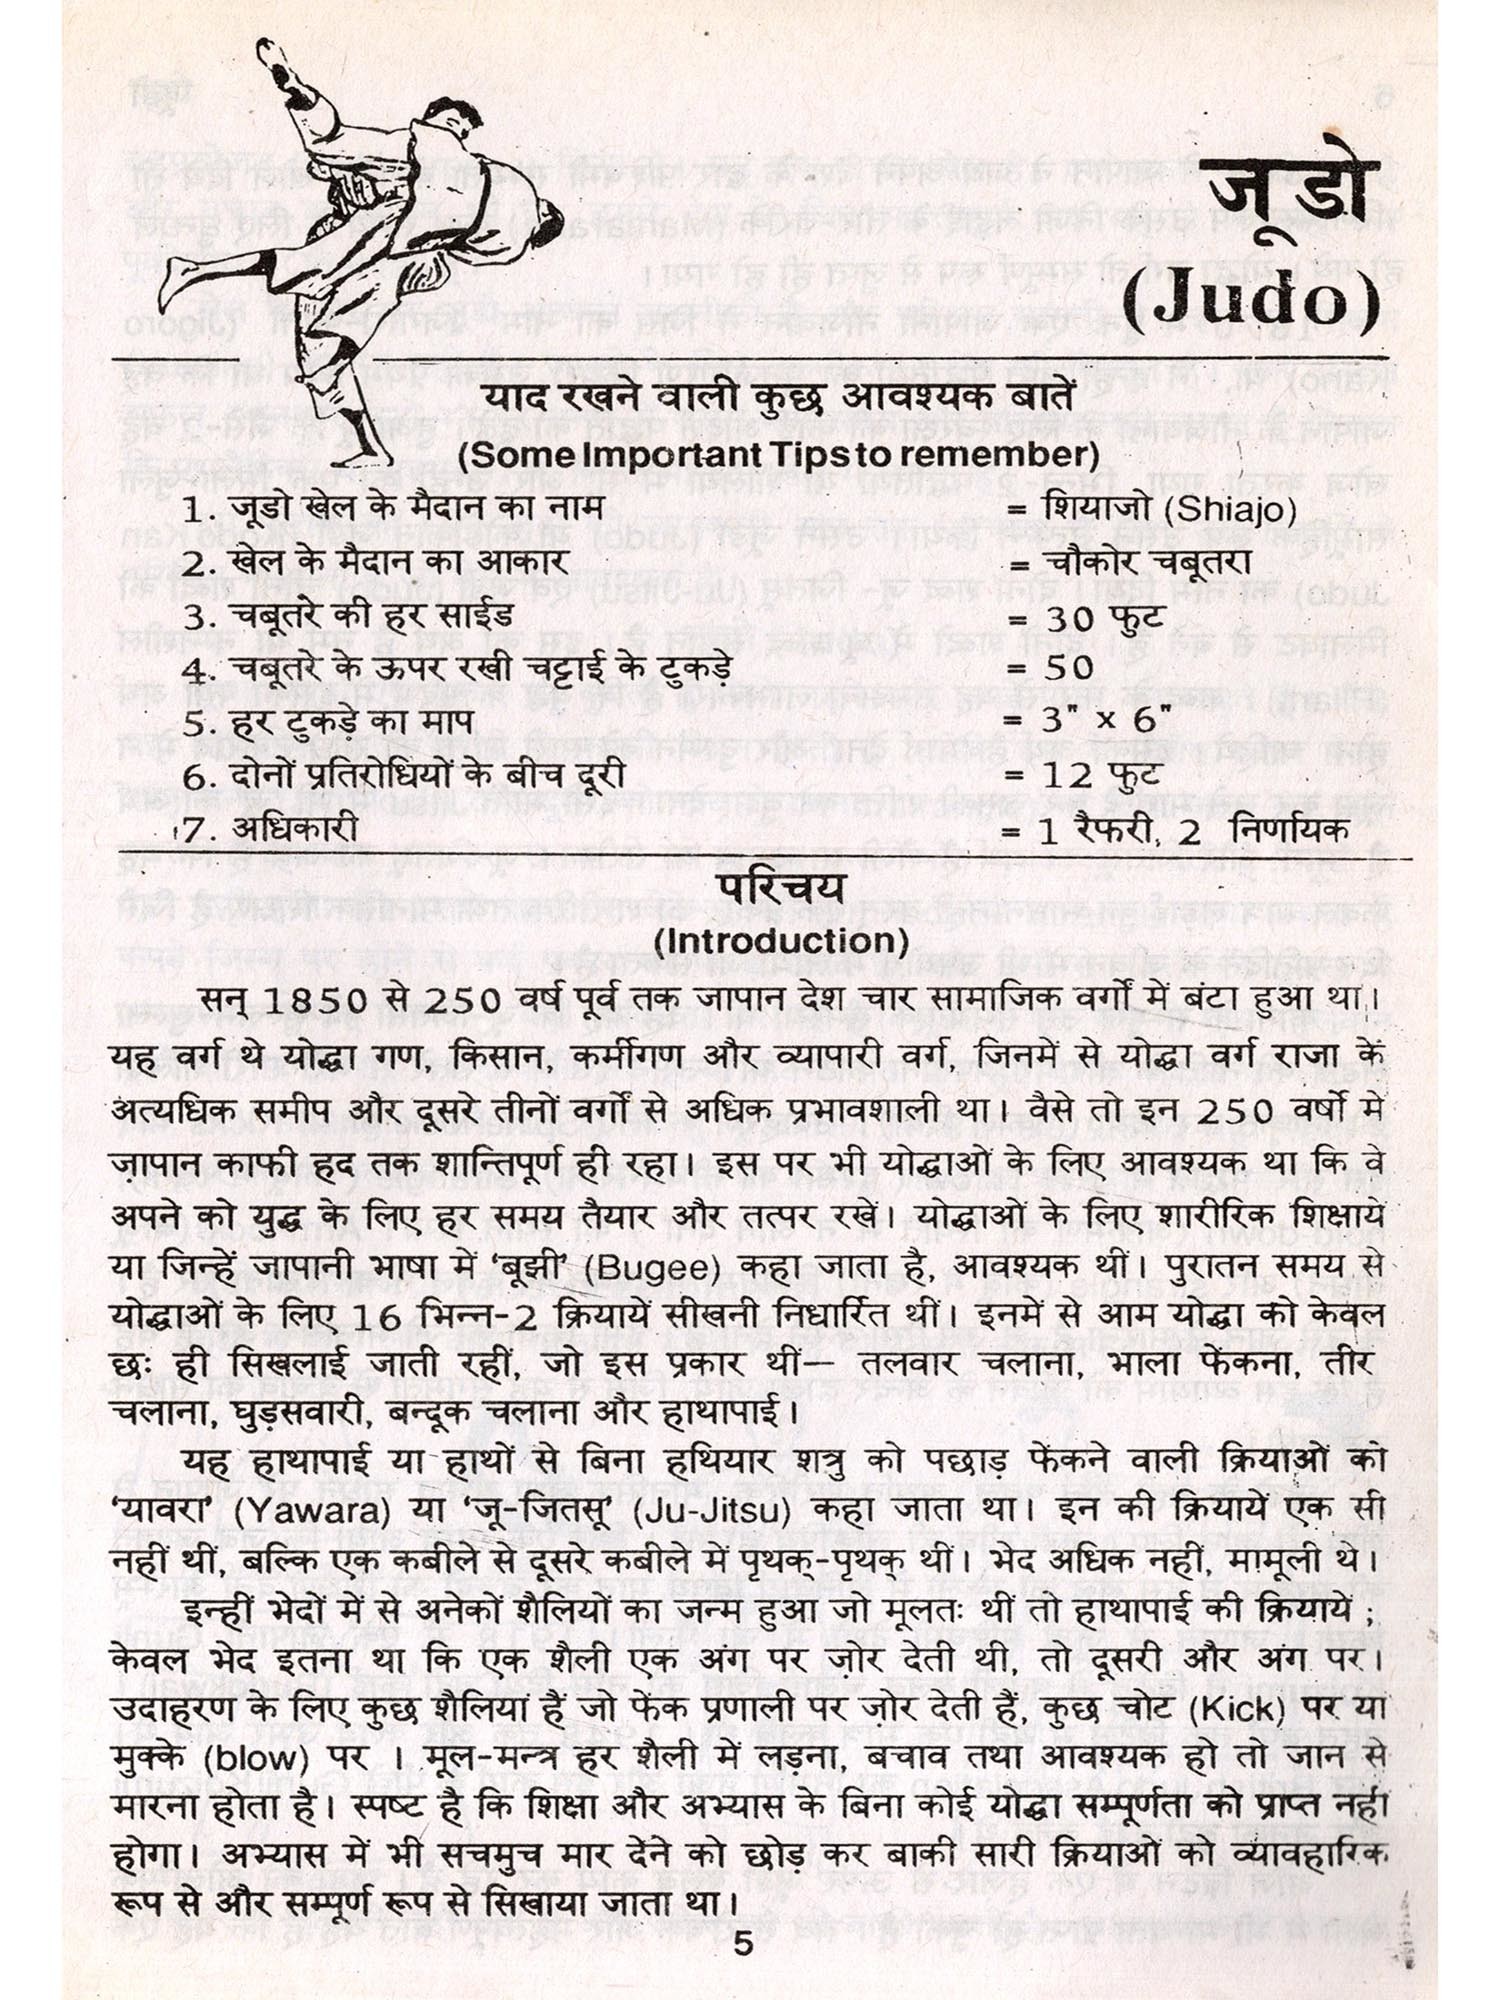 जूडो
(Judo)
याद रखने वाली कुछ आवश्यक बातें
(Some Important Tips to remember)
1. जूडो खेल के मैदान का नाम = शियाजो (Shiajo)
2. खेल के मैदान का आकार = चौकोर चबूतरा
3. चबूतरे की हर साईड = 30 फुट
4. चबूतरे के ऊपर रखी चट्टाई के टुकड़े = 50
5. हर टुकड़े का माप = 3" x 6"
6. दोनों प्रतिरोधियों के बीच दूरी = 12 फुट
7. अधिकारी = 1 रैफरी, 2 निर्णायक
परिचय
(Introduction)
सन् 1850 से 250 वर्ष पूर्व तक जापान देश चार सामाजिक वर्गों में बंटा हुआ था।
यह वर्ग थे योद्धा गण, किसान, कर्मीगण और व्यापारी वर्ग, जिनमें से योद्धा वर्ग राजा कें
अत्यधिक समीप और दूसरे तीनों वर्गों से अधिक प्रभावशाली था। वैसे तो इन 250 वर्षो मे
ज़ापान काफी हद तक शान्तिपूर्ण ही रहा। इस पर भी योद्धाओं के लिए आवश्यक था कि वे
अपने को युद्ध के लिए हर समय तैयार और तत्पर रखें। योद्धाओं के लिए शारीरिक शिक्षाये
या जिन्हें जापानी भाषा में ‘बूझी’ (Bugee) कहा जाता है, आवश्यक थीं। पुरातन समय से
योद्धाओं के लिए 16 भिन्न-2 क्रियायें सीखनी निर्धारित थीं। इनमें से आम योद्धा को केवल
छः ही सिखलाई जाती रहीं, जो इस प्रकार थीं— तलवार चलाना, भाला फेंकना, तीर
चलाना, घुड़सवारी, बन्दूक चलाना और हाथापाई।
यह हाथापाई या हाथों से बिना हथियार शत्रु को पछाड़ फेंकने वाली क्रियाओं को
‘यावरा’ (Yawara) या ‘जू-जितसू’ (Ju-Jitsu) कहा जाता था। इन की क्रियायें एक सी
नहीं थीं, बल्कि एक कबीले से दूसरे कबीले में पृथक्-पृथक् थीं। भेद अधिक नहीं, मामूली थे।
इन्हीं भेदों में से अनेकों शैलियों का जन्म हुआ जो मूलतः थीं तो हाथापाई की क्रियायें ;
केवल भेद इतना था कि एक शैली एक अंग पर ज़ोर देती थी, तो दूसरी और अंग पर।
उदाहरण के लिए कुछ शैलियां हैं जो फेंक प्रणाली पर ज़ोर देती हैं, कुछ चोट (Kick) पर या
मुक्के (blow) पर । मूल-मन्त्र हर शैली में लड़ना, बचाव तथा आवश्यक हो तो जान से
मारना होता है। स्पष्ट है कि शिक्षा और अभ्यास के बिना कोई योद्धा सम्पूर्णता को प्राप्त नहीं
होगा। अभ्यास में भी सचमुच मार देंने को छोड़ कर बाकी सारी क्रियाओं को व्यावहारिक
रूप से और सम्पूर्ण रूप से सिखाया जाता था।
5